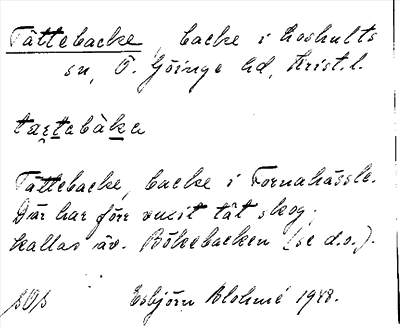 Tåttebacke, backe i Loshults
sn, Ö. Göinge hd, Krist. l.
Tåttebacke, backe i Tornahässle.
Där har förr vuxit tät skog,
kallas äv. Bökebacken (se d.o.).
Esbjörn Blohmé 1948.